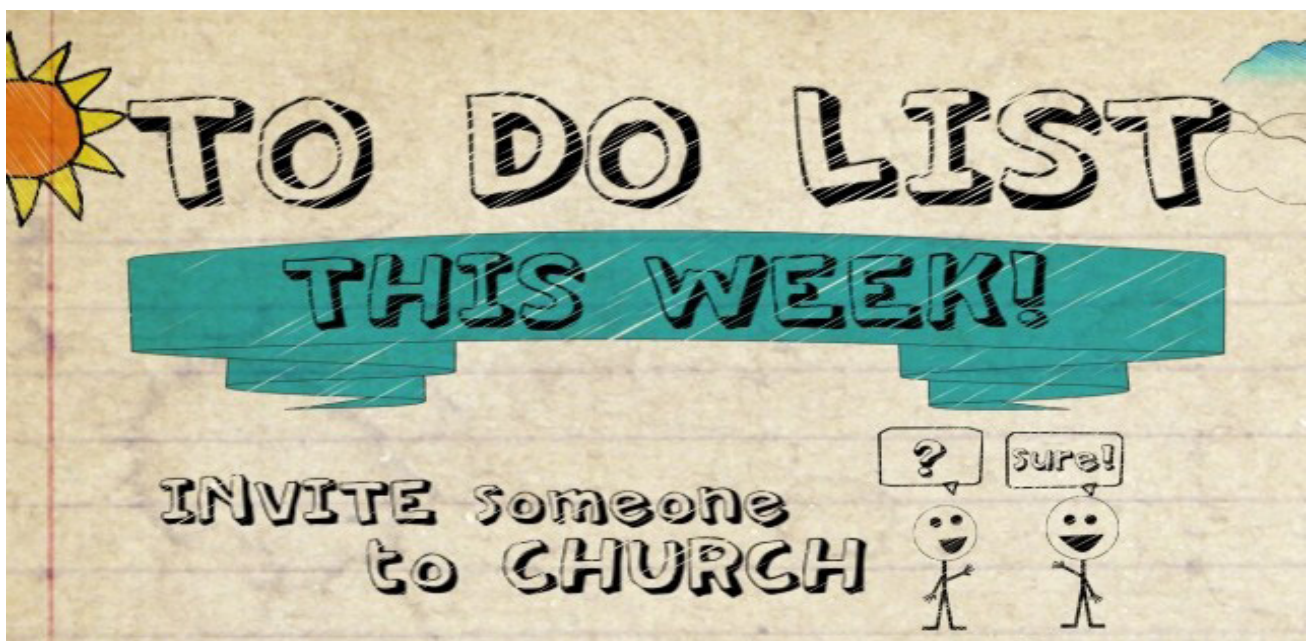 TO DO LIST
THIS WEEK!
?
sure!
INVITE someone
to CHURCH